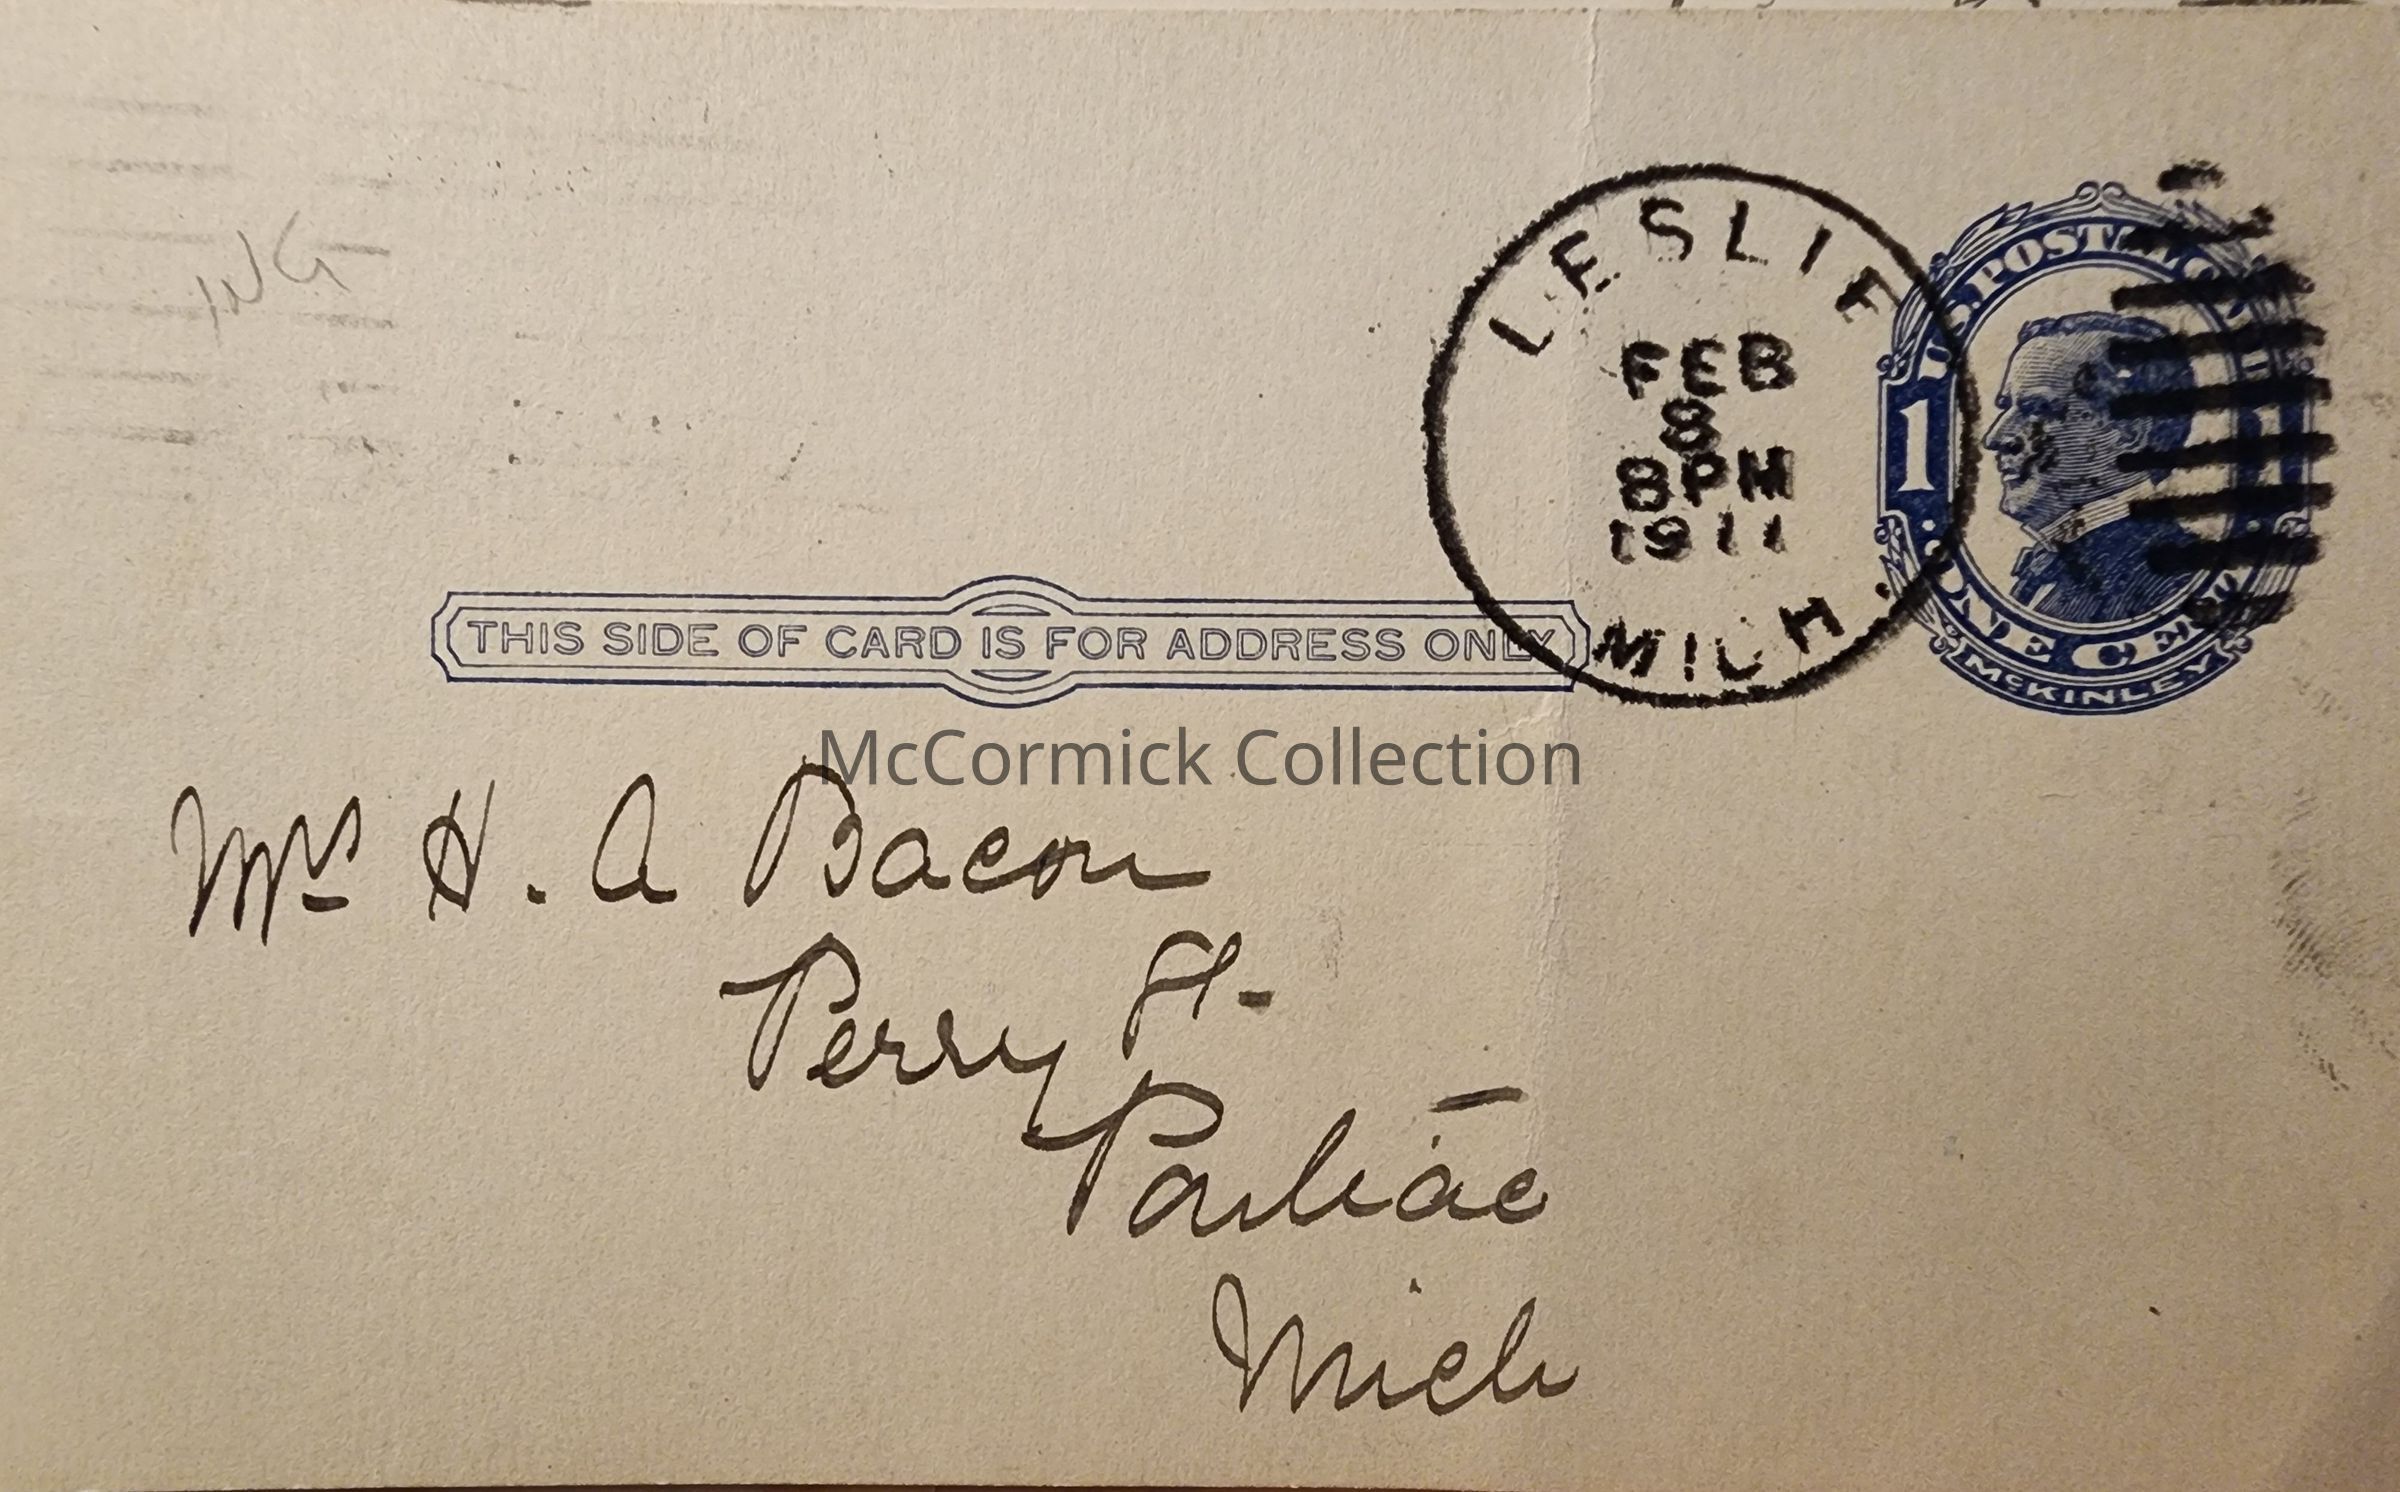 LESLIE
FEB
8
8 PM
1911
MICH.
U.S. POSTAGE
1 1
ONE CENT
McKINLEY
THIS SIDE OF CARD IS FOR ADDRESS ONLY
McCormick Collection
Mrs H. A Bacon
Perry St-
Pontiac
Mich